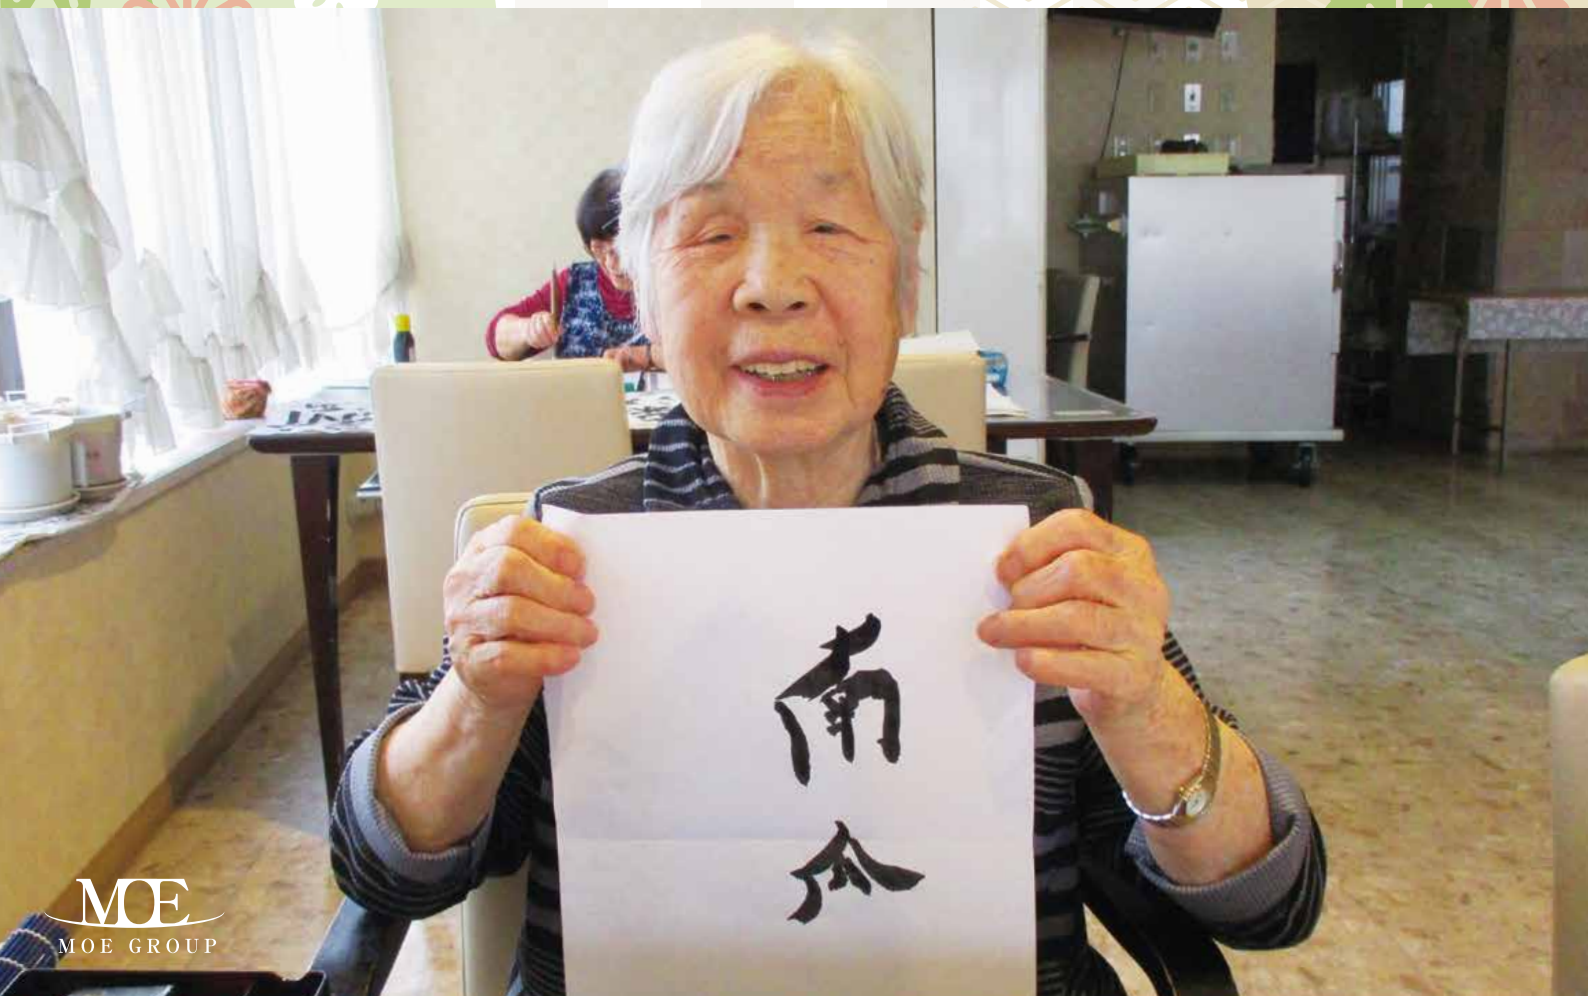 南瓜
MOE
MOE GROUP